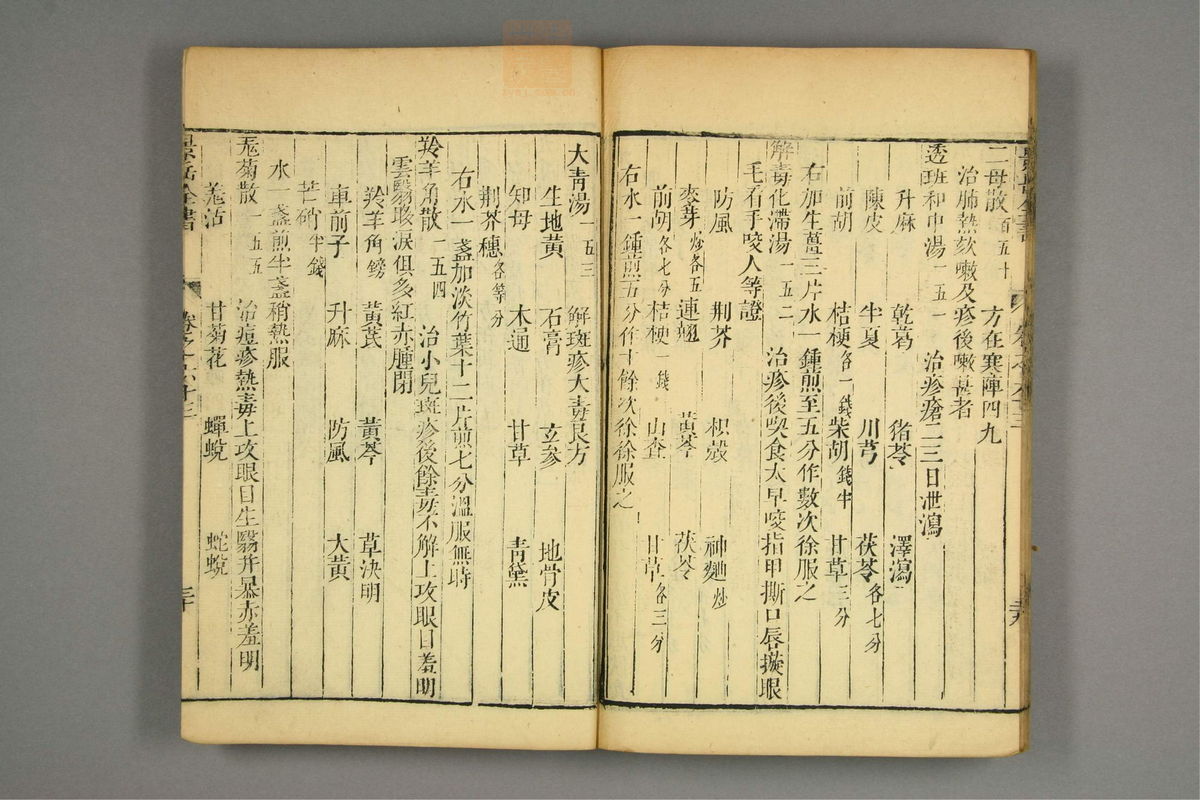 二母散 一百五十　方在寒陣四九
治肺熱欬嗽及疹後嗽甚者
透班和中湯 一五一　治疹瘡二三日泄瀉
升麻　乾葛　猪苓　澤瀉
陳皮　半夏　川芎　茯苓各七分
前胡　桔梗各一錢　柴胡錢半　甘草三分
右加生薑三片水一鍾煎至五分作數次徐服之
解毒化滯湯 一五二　治疹後喫食太早咬指甲撕口唇撏眼
毛看手咬人等證
防風　荆芥　枳殼　神麯炒
麥芽炒各五　連翹　黃芩　茯苓
前胡各七分　桔梗一錢　山查　甘草各三分
右水一鍾煎五分作十餘次徐徐服之
卷之六十三
三十九
大青湯 一五三　解斑疹大毒良方
生地黃　石膏　玄參　地骨皮
知母　木通　甘草　青黛
荆芥穗各等分
右水一盞加淡竹葉十二片煎七分溫服無時
羚羊角散 一五四　治小兒斑疹後餘毒不解上攻眼目羞明
雲翳眵淚俱多紅赤腫閉
羚羊角鎊　黃芪　黃芩　草決明
車前子　升麻　防風　大黃
芒硝半錢
水一盞煎半盞稍熱服
羗菊散 一五五　治痘疹熱毒上攻眼目生翳并暴赤羞明
羗活　甘菊花　蟬蛻　蛇蛻
景岳全書
卷之六十三